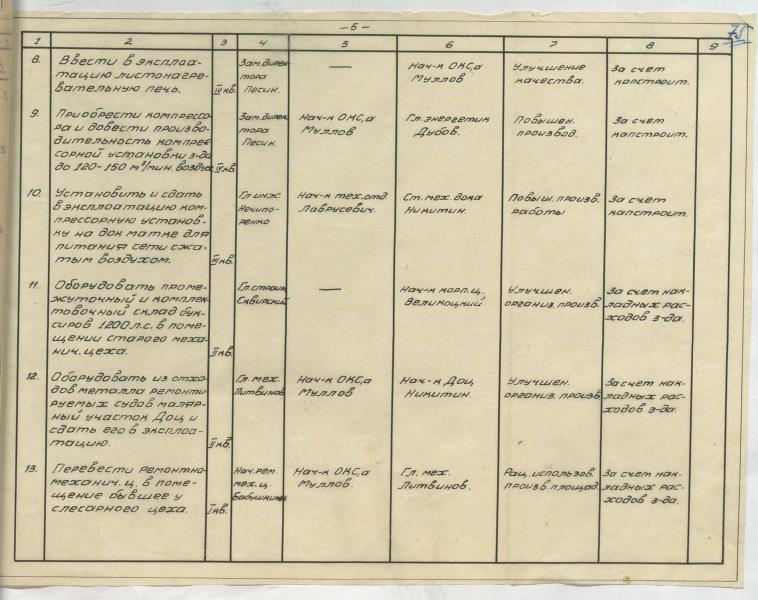 —5—
75
1 2 3 4 5 6 7 8 9
8. Ввести в эксплоа-
тацию листонагре-
вательную печь.
IV кв.
Зам. дирек
тора
Песин.
—
Нач-к ОКС,а
Муллов
Улучшение
качества.
За счет
капстроит.
9. Приобрести компрессо-
ра и довести произво-
дительность компрес
сорной установки з-да
до 120-150 м³/мин. воздух.
IV кв.
Зам. дирек
тора
Песин.
Нач-к ОКС,а
Муллов
Гл. энергетик
Дубов.
Повышен.
производ.
За счет
капстроит.
10. Установить и сдать
в эксплоатацию ком-
прессорную установ-
ку на док матке для
питания сети сжа-
тым воздухом.
III кв.
Гл. инж.
Нечипо-
ренко
Нач-к тех. отд.
Лаврусевич.
Ст. мех. дока
Никитин.
Повыш. произв.
работы
За счет
капстроит.
11. Оборудовать проме-
жуточный и комплек-
товочный склад бук-
сиров 1200 л.с. в поме-
щении старого меха-
нич. цеха.
II кв.
Гл. строит.
Сквирский
—
Нач-к корп. ц.
Великоцкий
Улучшен.
организ. произв.
За счет нак-
ладных рас-
ходов з-да.
12. Оборудовать из отхо-
дов металла ремонти
руемых судов маляр-
ный участок Доц и
сдать его в эксплоа-
тацию.
II кв.
Гл. мех.
Литвинов
Нач-к ОКС,а
Муллов
Нач-к Доц
Никитин.
Улучшен.
организ. произв.
За счет нак-
ладных рас-
ходов з-да.
13. Перевести ремонтно-
механич. ц. в поме-
щение бывшее у
слесарного цеха.
I кв.
Нач. рем.
мех. ц.
Бабушкин
Нач-к ОКС,а
Муллов.
Гл. мех.
Литвинов.
Рац. использов.
произв. площад.
За счет нак-
ладных рас-
ходов з-да.